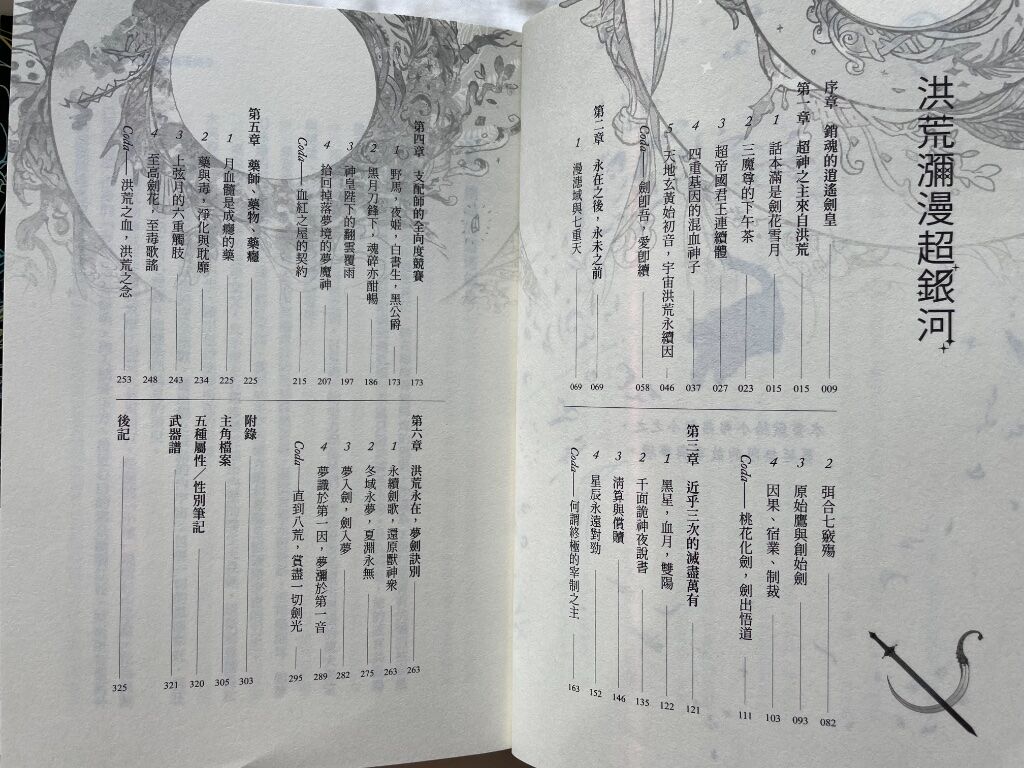 洪荒瀰漫超銀河
序章 銷魂的逍遙劍皇 009
第一章 超神之主來自洪荒 015
1 話本滿是劍花雪月 015
2 三魔尊的下午茶 023
3 超帝國君王連續體 027
4 四重基因的混血神子 037
5 天地玄黃始初音，宇宙洪荒永續因 046
Coda——劍即吾，愛即續 058
第二章 永在之後，永未之前 069
1 漫漶域與七重天 069
2 弭合七竅殤 082
3 原始鷹與創始劍 093
4 因果、宿業、制裁 103
Coda——桃花化劍，劍出悟道 111
第三章 近乎三次的滅盡萬有 121
1 黑星，血月，雙陽 122
2 千面詭神夜說書 135
3 清算與償贖 146
4 星辰永遠對勁 152
Coda——何謂終極的宰制之主 163
第四章 支配師的全向度競賽 173
1 野馬，夜姬，白書生，黑公爵 173
2 黑月刀鋒下，魂碎亦酣暢 186
3 神皇陛下的翻雲覆雨 197
4 拾回掉落夢境的夢魔神 207
Coda——血紅之屋的契約 215
第五章 藥師、藥物、藥癮 225
1 月血髓是成癮的藥 225
2 藥與毒，淨化與耽靡 234
3 上弦月的六重觸肢 243
4 至高劍花，至毒歌謠 248
Coda——洪荒之血，洪荒之念 253
第六章 洪荒永在，夢劍訣別 263
1 永續劍歌，還原獸神衆 263
2 冬域永夢，夏淵永無 275
3 夢入劍，劍入夢 282
4 夢識於第一因，夢瀰於第一音 289
Coda——直到八荒，賞盡一切劍光 295
附錄 303
主角檔案 305
五種屬性／性別筆記 320
武器譜 321
後記 325